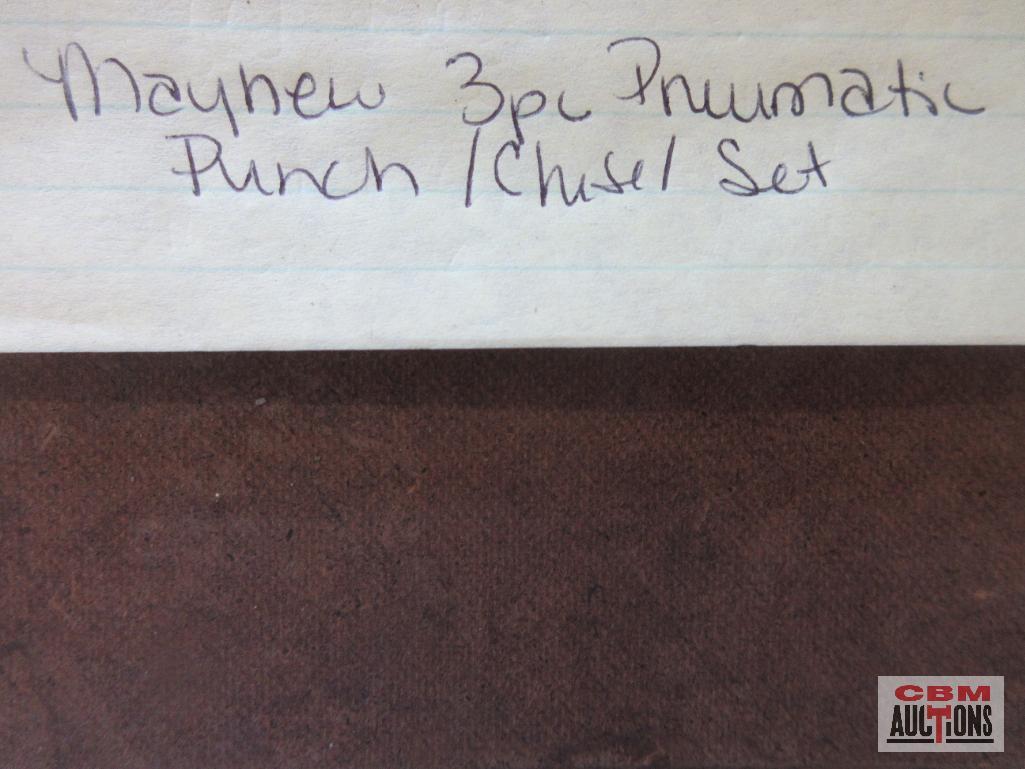 Mayhew 3pc Pneumatic
Punch / Chisel Set
CBM
AUCTIONS